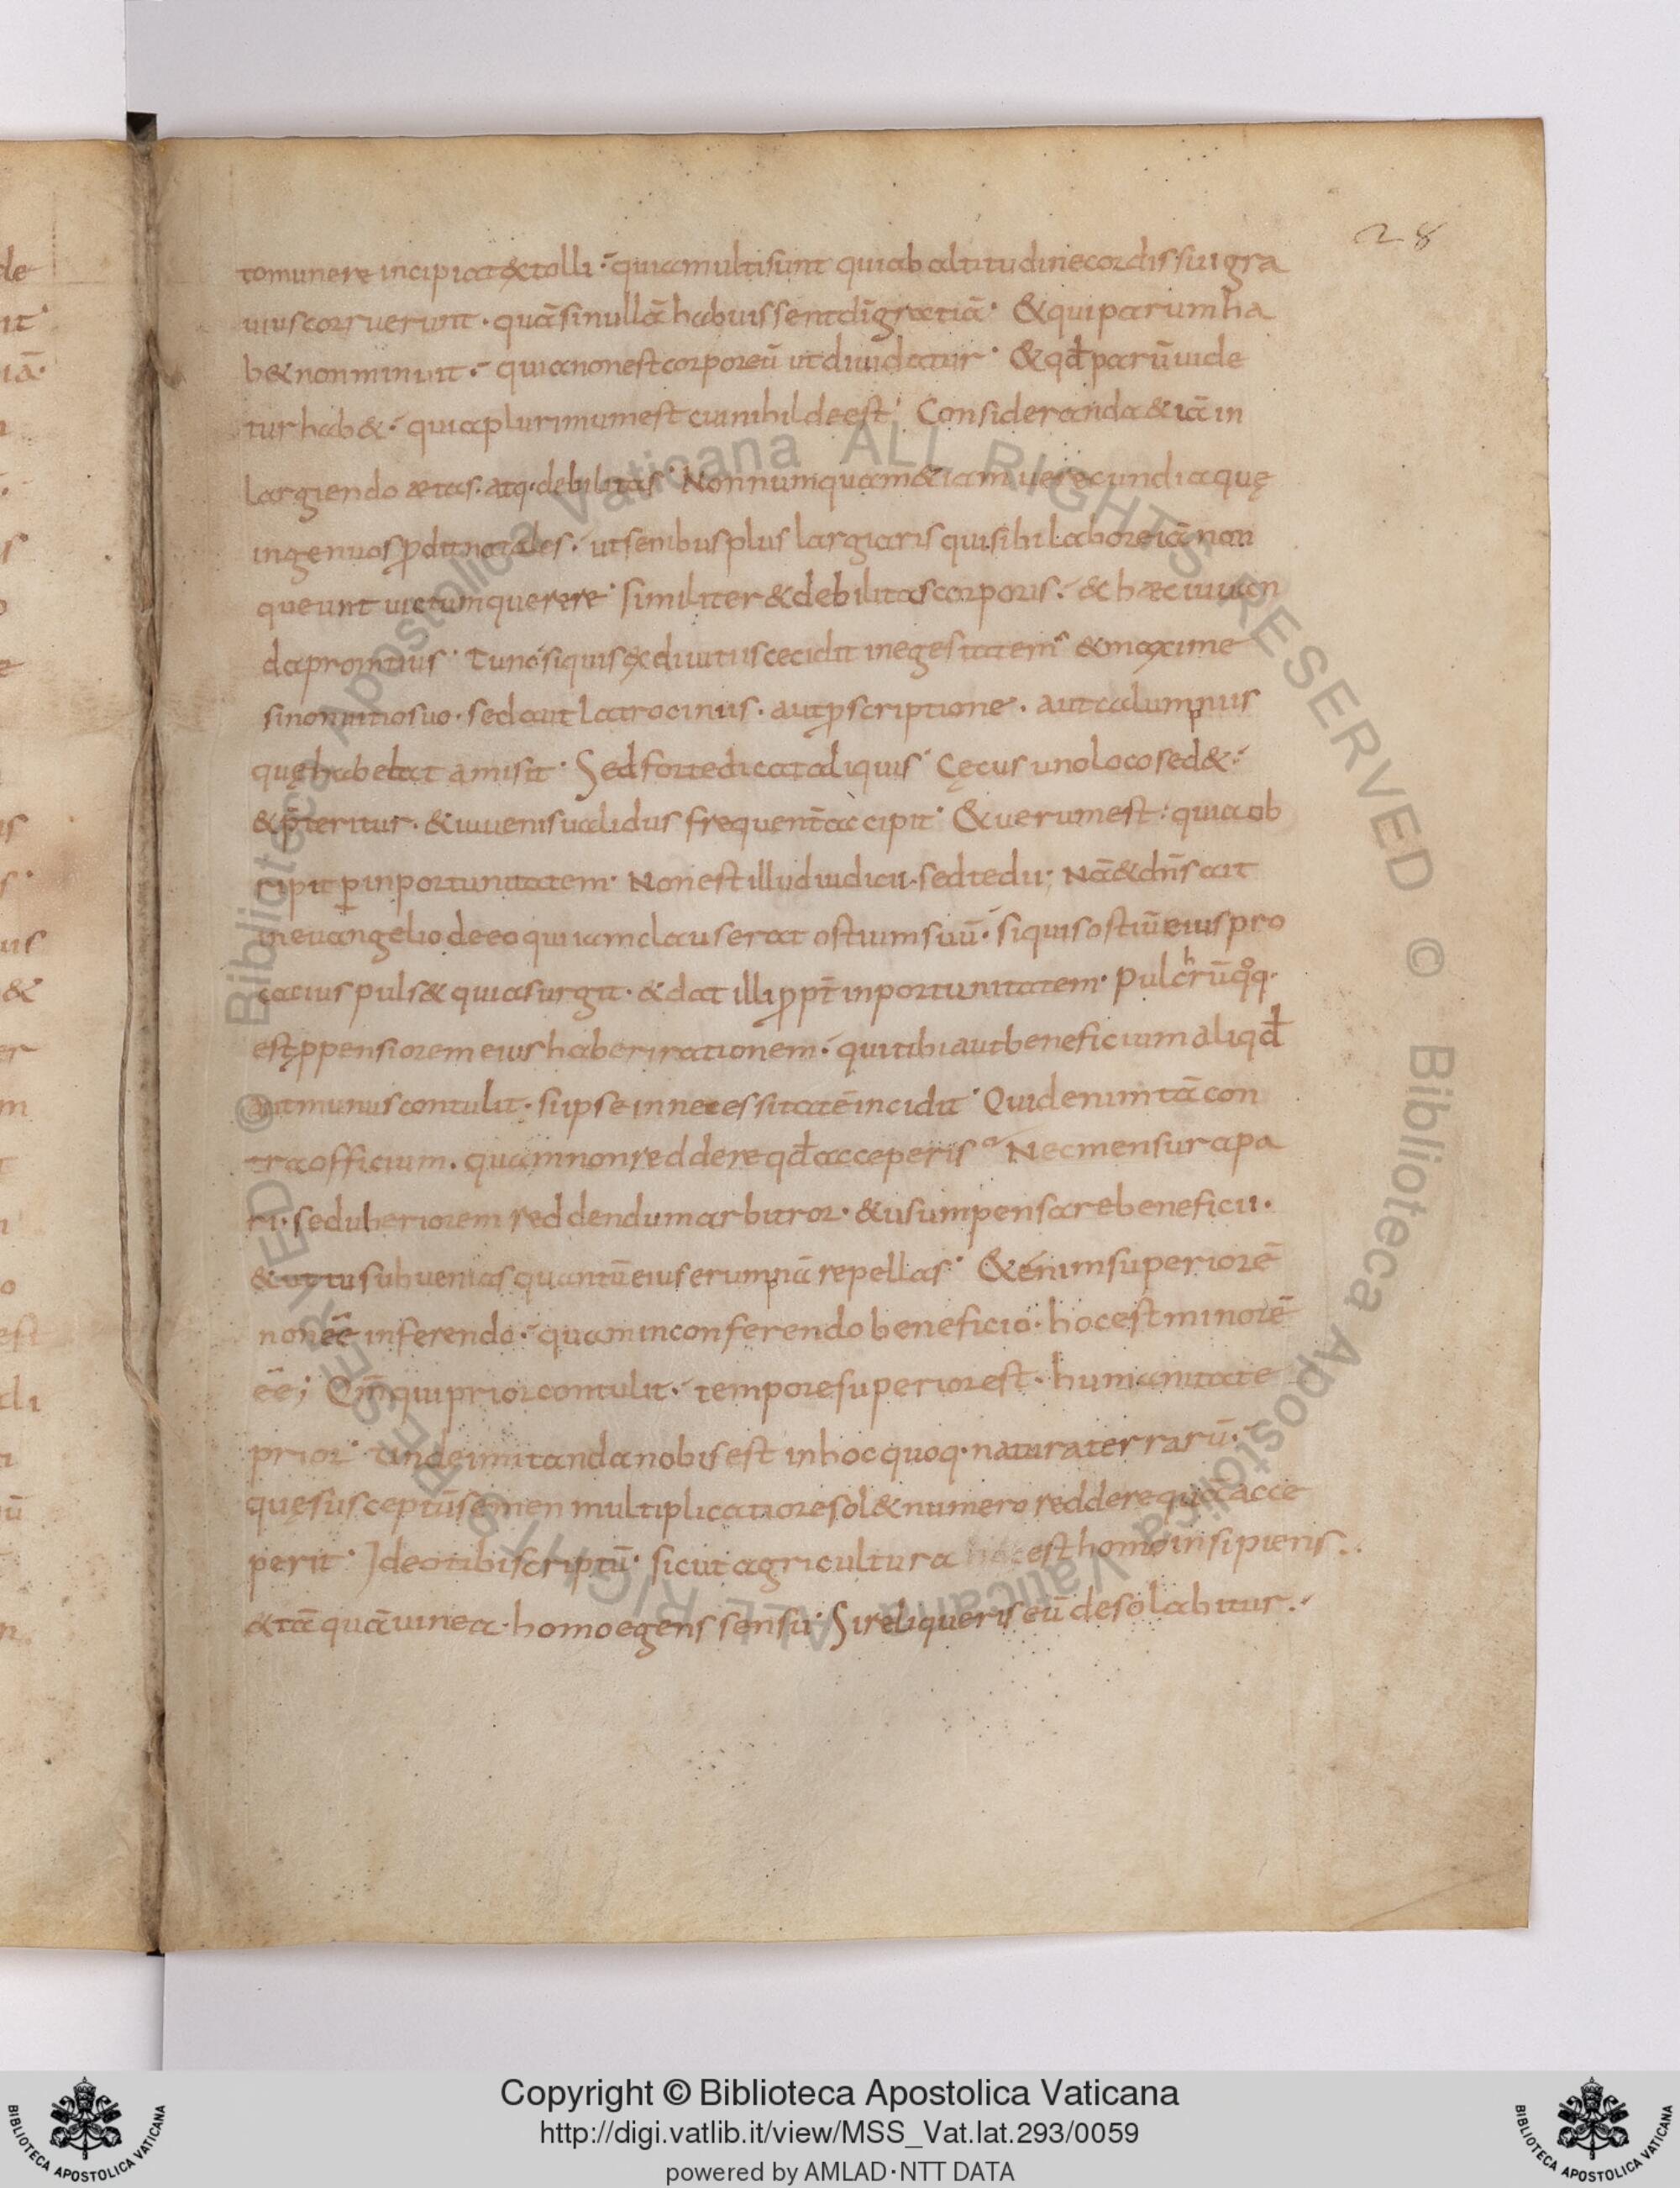 28
to munere incipiat extolli · quia multi sunt qui ab altitudine cordis sui gra
uius corruerunt · quā si nullā habuissent dī gratiā · & qui parum ha
b& non minuit · quia non est corporeū ut diuidatur · & qđ parū uide
tur hab& · quia plurimum est cui nihil deest · Consideranda & iā in
largiendo aetas · atq· debilitas · Nonnumquam & iam uerecundia quę
ingenuos ꝓdit natales · ut senibus plus largiaris qui sibi labore iā non
queunt uictum querere · similiter & debilitas corporis · & haec iuuan
da promtius · Tunc si quis ex diuitiis cecidit in egestatem · & maxime
si non uitio suo · sed aut latrociniis · aut ꝓscriptione · aut calumpniis
quę habebat amisit · Sed forte dicat aliquis · Cęcus uno loco sed& ·
& p̄teritur · & iuuenis ualidus frequent̄ accipit · & uerum est · quia ob
ripit ꝑ inportunitatem · Non est illud iudicii · sed tedii · Nā & dn̄s ait
in euangelio de eo qui iam clauserat ostium suū · si quis ostiū eius pro
cacius puls& quia surgit · & dat illi ꝓpt̄ inportunitatem · Pulchrū qͦq·
est ꝓpensiorem eius haberi rationem · qui tibi aut beneficium aliqđ
aut munus contulit · si ipse in necessitatē incidit · Quid enim tā con
tra officium · quam non reddere qđ acceperis · Nec mensura pa
ri · sed uberiorem reddendum arbitror · & usum pensare beneficii ·
& ut tu subuenias quantū eius erumpnā repellas · & enim superiorē
non ēē in ferendo · quam in conferendo beneficio · hoc est minorē
ēē; Qm̄ qui prior contulit · tempore superior est · humanitate
prior · Unde imitanda nobis est in hoc quoq· natura terrarū ·
quę susceptū semen multiplicatiore sol& numero reddere quā acce
perit · Ideo tibi scriptū · sicut agricultura est homo insipiens ·
& tā quā uinea · homo egens sensu · Si reliqueris eū desolabitur ·
© Biblioteca Apostolica Vaticana ALL RIGHTS RESERVED © Biblioteca Apostolica Vaticana ALL RIGHTS RESERVED
Copyright © Biblioteca Apostolica Vaticana
http://digi.vatlib.it/view/MSS_Vat.lat.293/0059
powered by AMLAD·NTT DATA
BIBLIOTECA APOSTOLICA VATICANA
BIBLIOTECA APOSTOLICA VATICANA